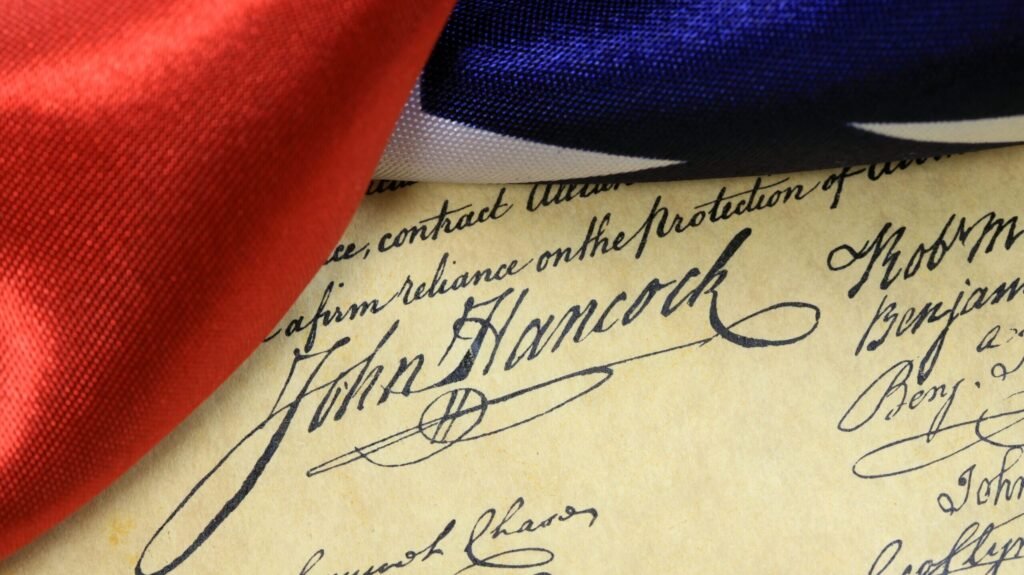 ce, contract
a firm reliance on the protection of
John Hancock
Rob M
Benjam
Benj.
John
Chase